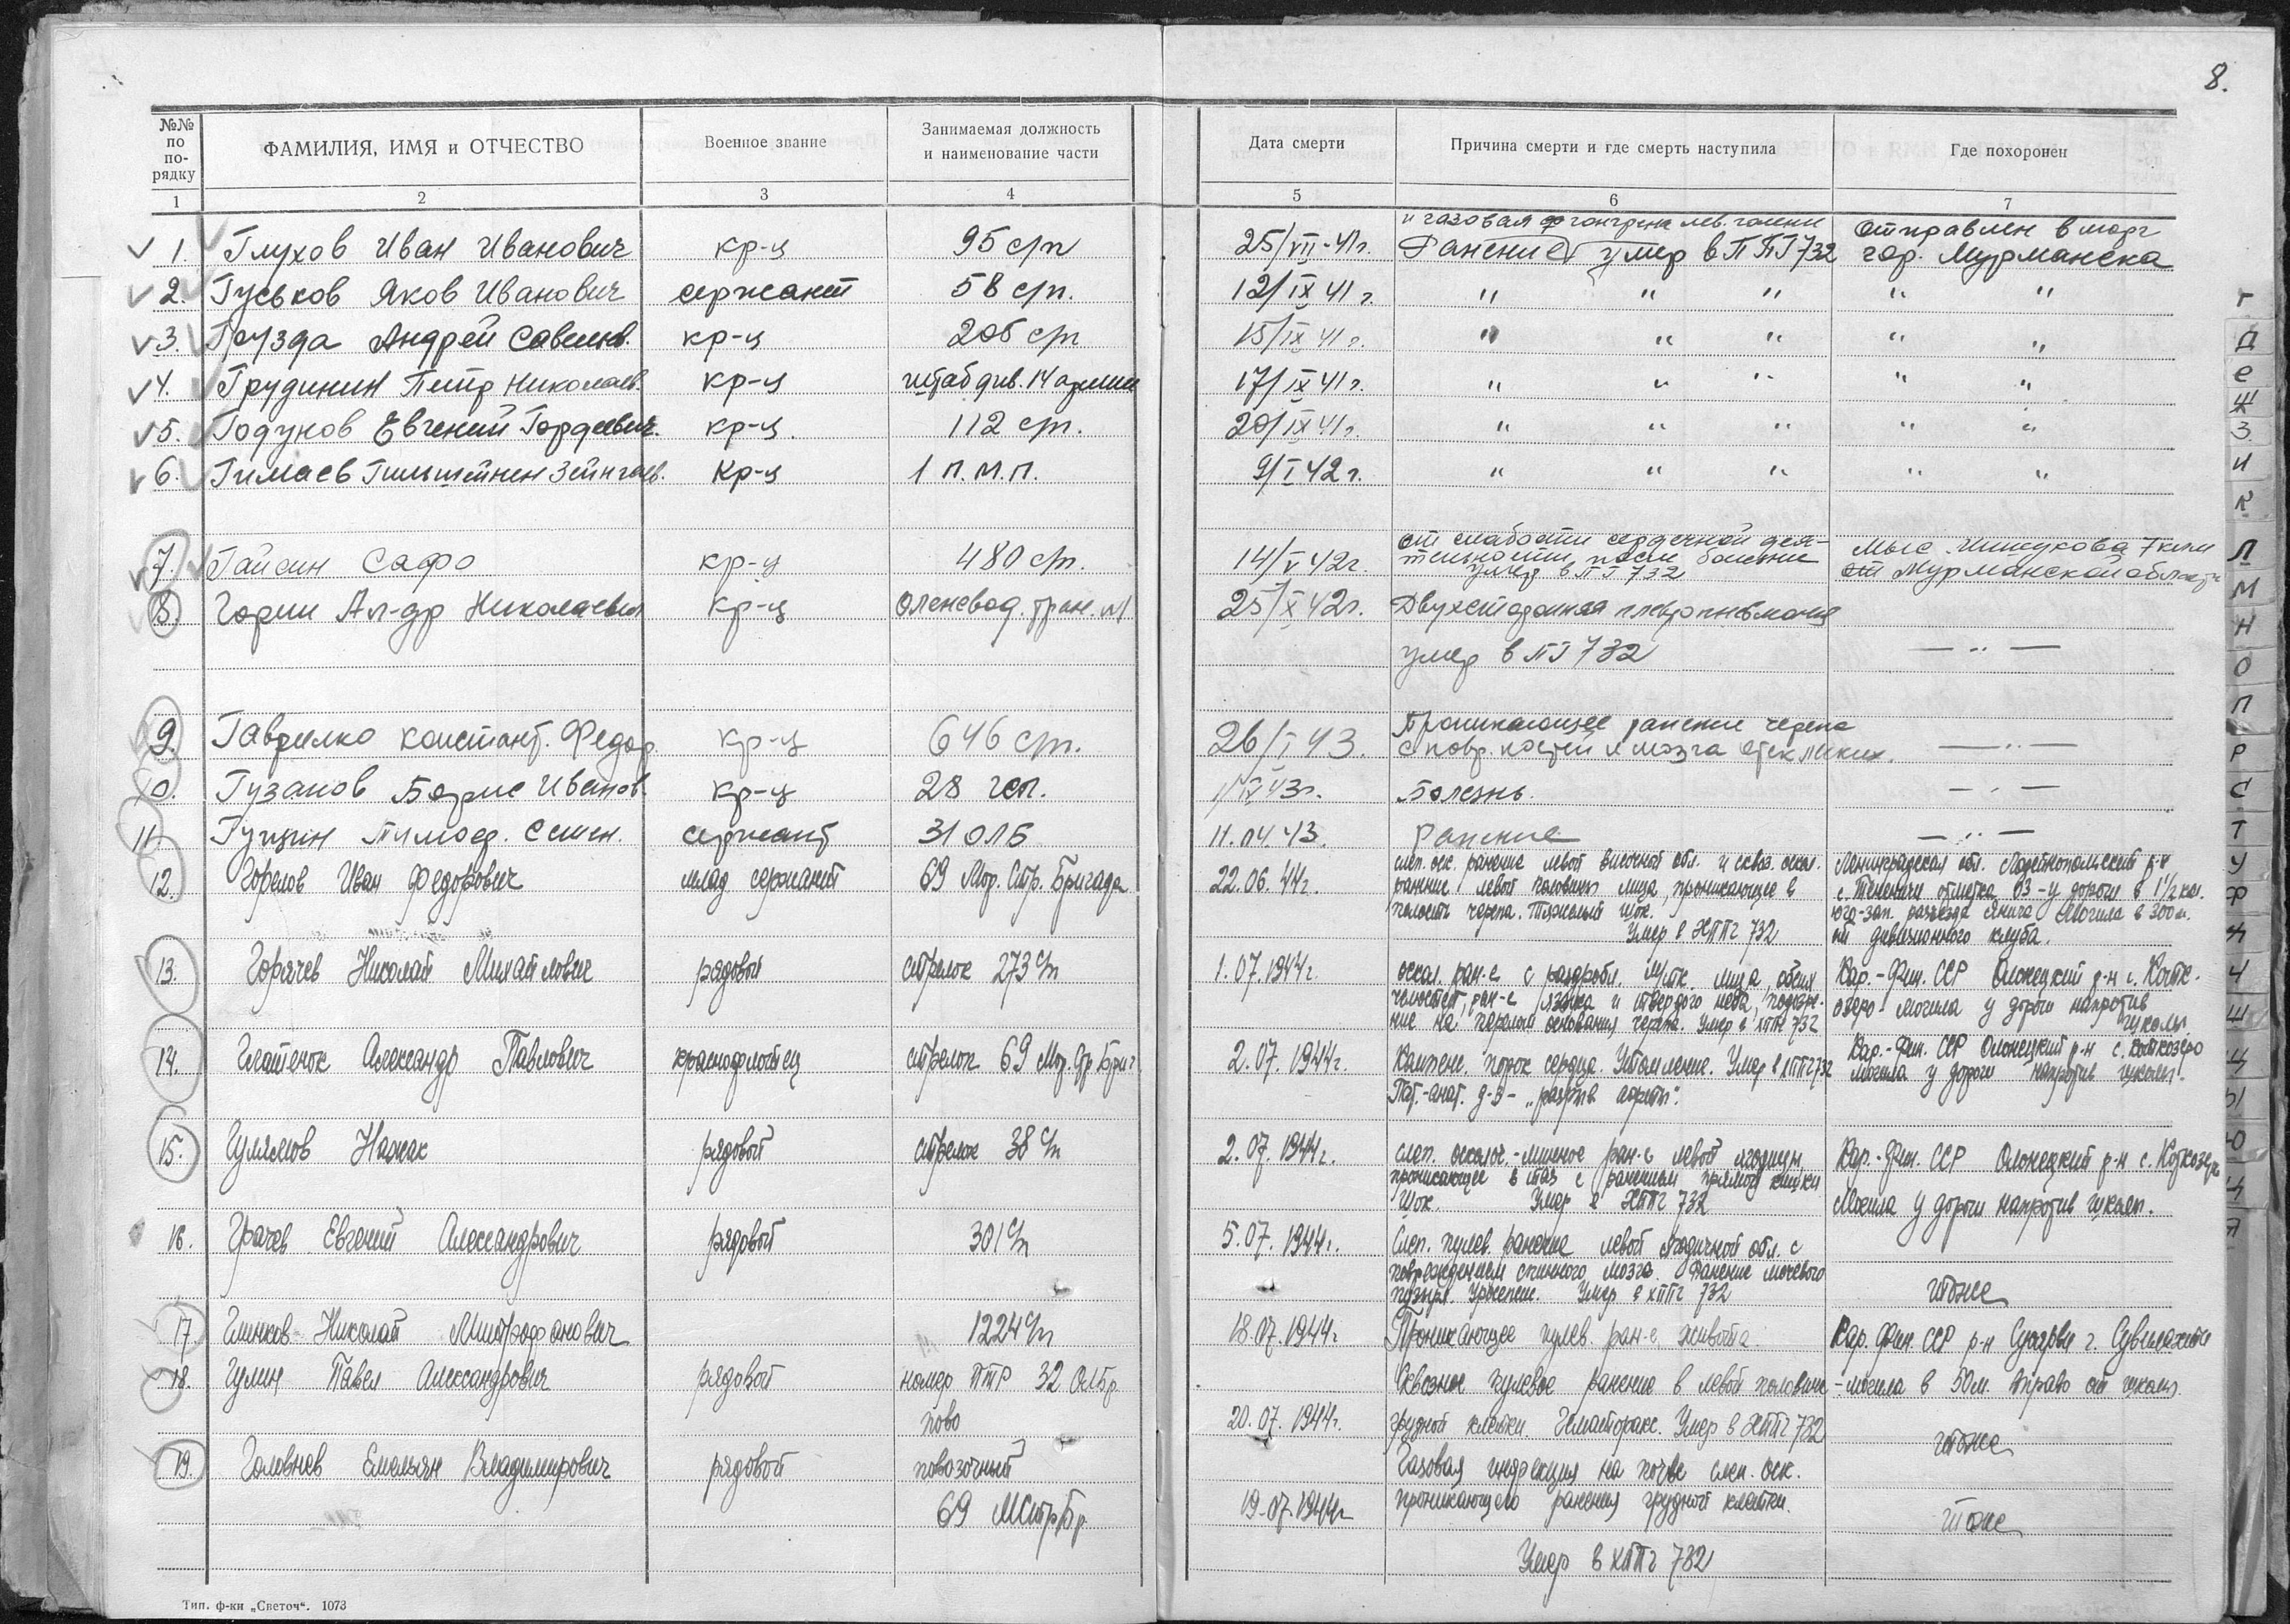 8.
№№ по по- рядку | ФАМИЛИЯ, ИМЯ и ОТЧЕСТВО | Военное звание | Занимаемая должность и наименование части | Дата смерти | Причина смерти и где смерть наступила | Где похоронен
1 | 2 | 3 | 4 | 5 | 6 | 7
и газовая гангрена лев. голени | Отправлен в морг
1. Глухов Иван Иванович | кр-ц | 95 с/п | 25/VII-41г. | Ранение умер в ППГ 732 | гор. Мурманска
2. Гуськов Яков Иванович | сержант | 58 с/п. | 12/IX 41 г. | " " " | " "
3. Грузда Андрей Савельев. | кр-ц | 205 с/п | 15/IX 41 г. | " " " | " "
4. Грудинин Петр Николаев. | кр-ц | штаб див. 14 армии | 17/IX 41 г. | " " " | " "
5. Годунов Евгений Гордеевич. | кр-ц. | 112 с/п. | 20/IX 41 г. | " " " | " "
6. Гимаев | кр-ц | 1 п.м.п. | 9/I 42 г. | " " " | " "
от слабости сердечной дея-
7. Гайсин Сафо | кр-ц | 480 с/п. | 14/V 42г. | тельности после болезни | мыс Мишукова 7 клм
умер в ПГ 732 | от Мурманской области
8. Горин Ал-др Николаевич | кр-ц | Оленевод. тран. | 25/X 42г. | Двухсторонняя плевропневмония
умер в ПГ 732 | — " —
Проникающее ранение черепа
9. Гаврилко Констант. Федор. | кр-ц | 646 с/п. | 26/I 43. | с повр. костей и мозга отек легких. | — " —
10. Гузанов Борис Иванов. | кр-ц | 28 | 43г. | Болезнь. | — " —
11. Гущин Тимоф. Семен. | сержант | 31 ОЛБ | 11.04.43. | Ранение | — " —
12. Горелов Иван Федорович | млад сержант | 69 Мор. Стр. Бригада | 22.06.44г. | слеп. оск. ранение левой височной обл. и сквоз. оскол. | Ленинградская обл. Лодейнопольский р-н
ранние левой половины лица, проникающее в | с. Тененичи отметка 03 - у дороги в 1½ км.
полость черепа. Тяжелый шок. | юго-зап. разъезда Янега Могила в 300 м.
Умер в ХППГ 732 | от дивизионного клуба.
13. Горячев Николай Михайлович | рядовой | стрелок 273 с/п | 1.07.1944г. | оскол. ран-е с раздробл. мягк. лица, обеих | Кар.-Фин. ССР Олонецкий р-н с. Котк-
челюстей, ран-е языка и твердого неба, подозре- | озеро - могила у дороги напротив
ние на перелом основания черепа. Умер в ХППГ 732 | школы
14. Игнатенок Александр Павлович | краснофлотец | стрелок 69 Мор. Стр Бриг. | 2.07.1944г. | порок сердца. Утомление. Умер в ХППГ 732 | Кар.-Фин. ССР Олонецкий р-н с. Коткозеро
Пат.-анат. д-з - "разрыв аорты". | могила у дороги напротив школы.
15. Гулямов | рядовой | стрелок 38 с/п | 2.07.1944г. | слеп. осколоч.-минное ран-е левой ягодицы, | Кар.-Фин. ССР Олонецкий р-н с. Коткозеро
проникающее в таз с ранением прямой кишки
Шок. Умер в ХППГ 732 | Могила у дороги напротив школы.
16. Грачев Евгений Александрович | рядовой | 301 с/п | 5.07.1944г. | Слеп. пулев. ранение левой ягодичной обл. с
повреждением спинного мозга. Ранение мочевого
пузыря. Уросепсис. Умер в ХППГ 732 | тоже
17. Глинков Николай Митрофанович | 1224 с/п | 18.07.1944г. | Проникающее пулев. ран-е живота. | Кар. Фин. ССР р-н
18. Гулин Павел Александрович | рядовой | номер ПТР 32 ОЛБр | Сквозное пулевое ранение в левой половине | - могила в 50 м. вправо от школы
пово | 20.07.1944г. | грудной клетки. Гематоракс. Умер в ХППГ 732 | тоже
19. Головнев Емельян Владимирович | рядовой | повозочный | Газовая инфекция на почве слеп. оск.
69 МСтрБр | 19.07.1944г | проникающего ранения грудной клетки. | тоже
Умер в ХППГ 732
Тип. ф-ки „Светоч“. 1073
Г
Д
Е
Ж
З
И
К
Л
М
Н
О
П
Р
С
Т
У
Ф
Ч
Ш
Щ
Ы
Ю
Я